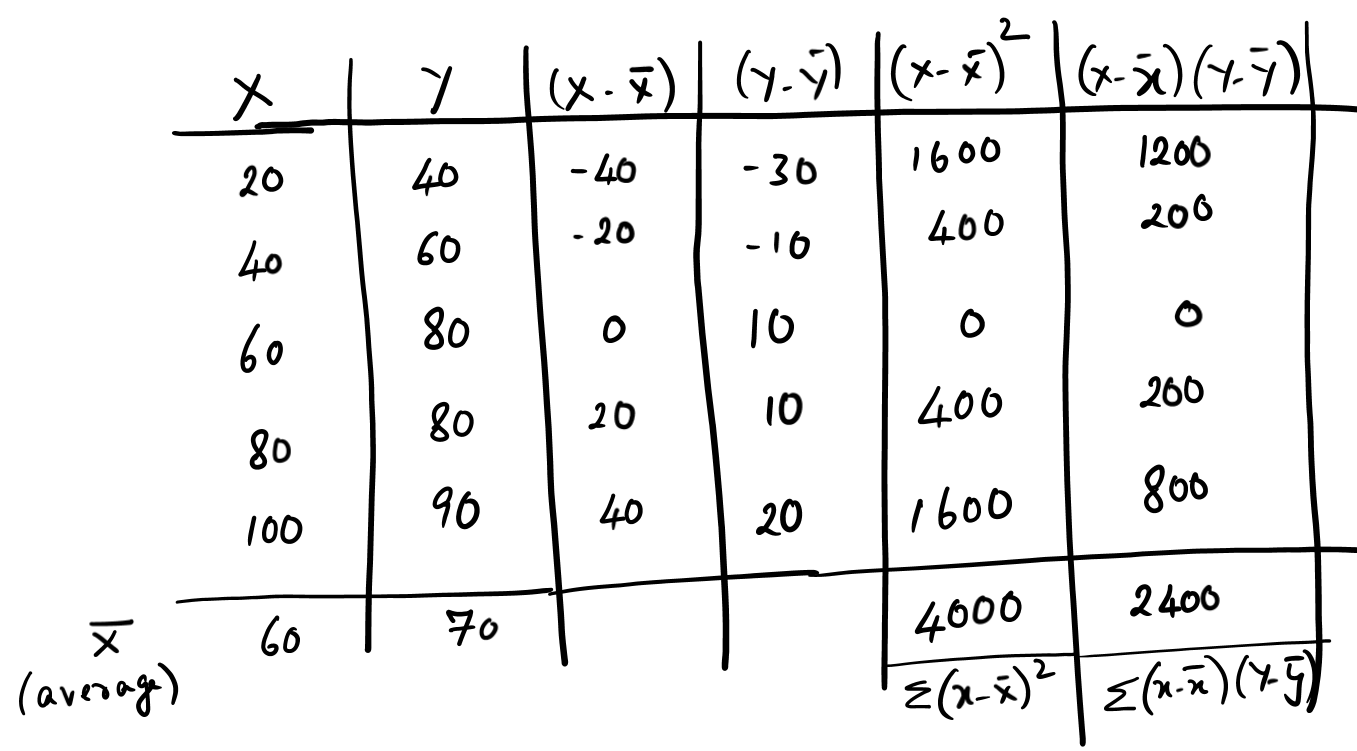 X Y (X - X̄) (Y - Ȳ) (X - X̄)² (X - x̄)(Y - Ȳ)
20 40 -40 -30 1600 1200
40 60 -20 -10 400 200
60 80 0 10 0 0
80 80 20 10 400 200
100 90 40 20 1600 800
X̄ 60 70 4000 2400
(average) Σ(x - x̄)² Σ(x - x̄)(Y - ȳ)